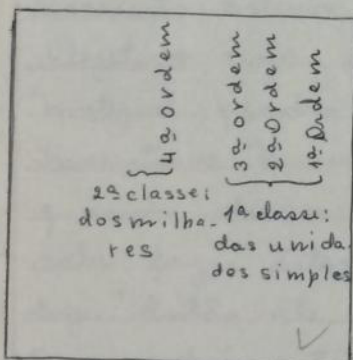 4ª Ordem
3ª Ordem
2ª Ordem
1ª Ordem
2ª classe:
dos milha-
res
1ª classe:
das unida-
des simples